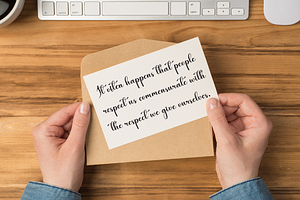 It often happens that people
respect us commensurate with
the respect we give ourselves.